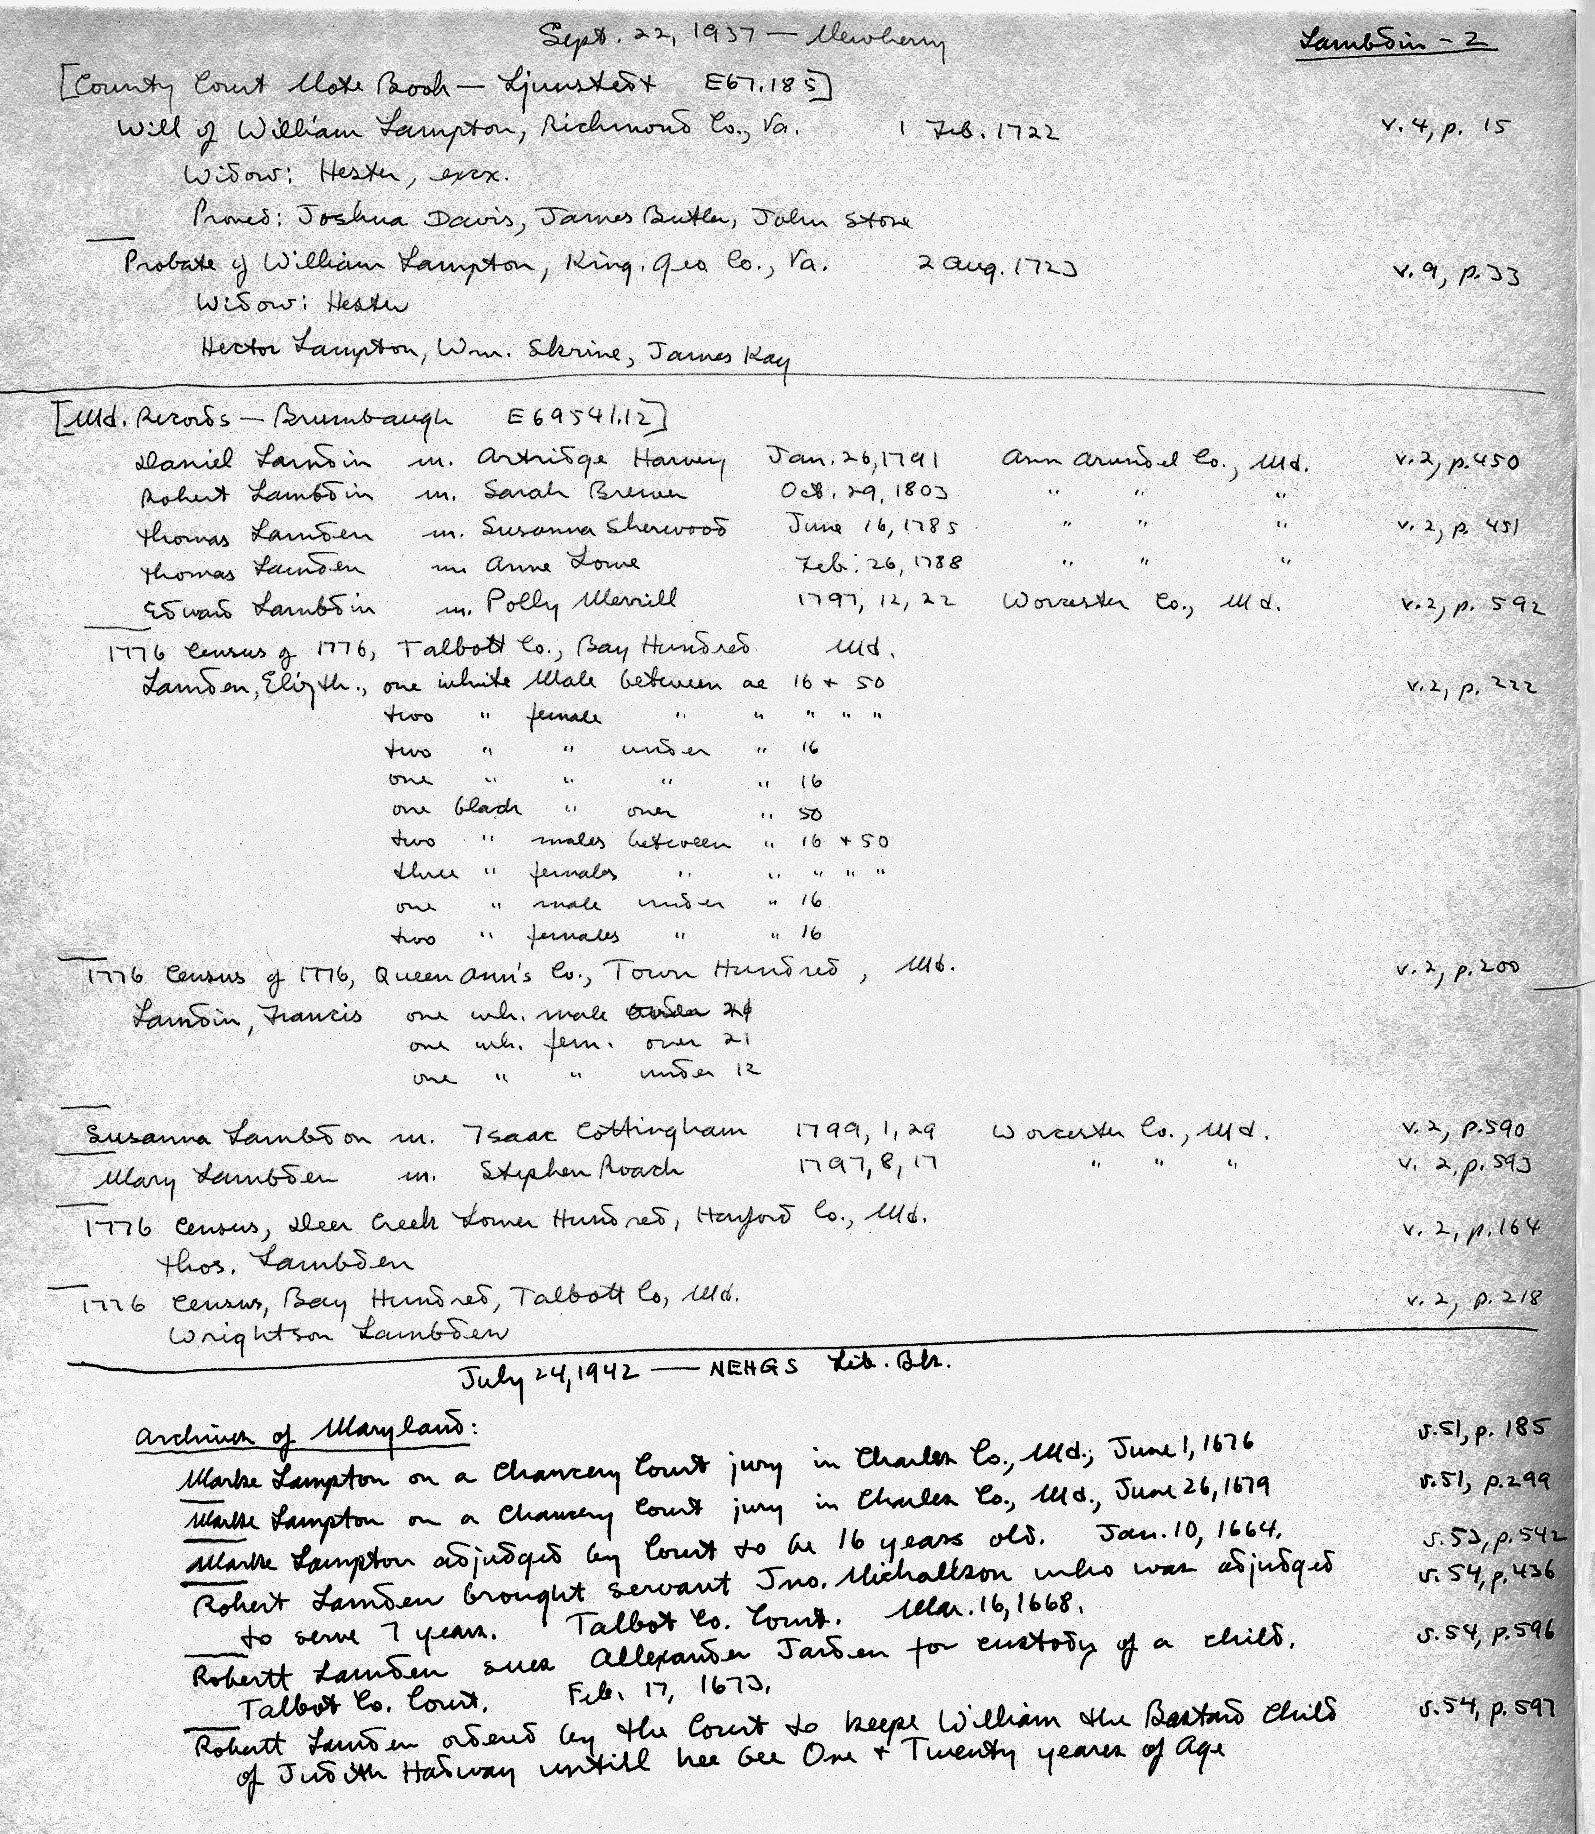 Sept. 22, 1937 — Newberry Lambdin - 2
[County Court Note Book — Ljunstedt E67.185]
Will of William Lampton, Richmond Co., Va. 1 Feb. 1722 v. 4, p. 15
Widow: Hester, exrx.
Proved: Joshua Davis, James Butler, John Stone
Probate of William Lampton, King. Geo. Co., Va. 2 Aug. 1723 v. 9, p. 33
Widow: Hester
Hector Lampton, Wm. Skrine, James Kay
[Md. Records — Brumbaugh E69541.12]
Daniel Lamdin m. Artridge Harvey Jan. 26, 1791 Ann Arundel Co., Md. v. 2, p. 450
Robert Lambdin m. Sarah Brewer Oct. 29, 1803 " " "
Thomas Lamden m. Susanna Sherwood June 16, 1785 " " " v. 2, p. 451
Thomas Lamden m. Anne Lowe Feb. 26, 1788 " " "
Edward Lambdin m. Polly Merrill 1797, 12, 22 Worcester Co., Md. v. 2, p. 592
1776 Census of 1776, Talbott Co., Bay Hundred Md.
Lamden, Elizth., one white Male between ae 16 + 50 v. 2, p. 222
two " female " " " " "
two " " under " 16
one " " " " 16
one black " over " 50
two " males between " 16 + 50
three " females " " " " "
one " male under " 16
two " females " " 16
1776 Census of 1776, Queen Ann's Co., Town Hundred, Md. v. 2, p. 200
Lamdin, Francis one wh. male under 21
one wh. fem. over 21
one " " under 12
Susanna Lambdon m. Isaac Cottingham 1799, 1, 29 Worcester Co., Md. v. 2, p. 590
Mary Lambden m. Stephen Roach 1797, 8, 17 " " " v. 2, p. 593
1776 Census, Deer Creek Lower Hundred, Harford Co., Md. v. 2, p. 164
Thos. Lambden
1776 Census, Bay Hundred, Talbott Co, Md. v. 2, p. 218
Wrightson Lambden
July 24, 1942 — NEHGS Lib. Bk.
Archives of Maryland: v. 51, p. 185
Marke Lampton on a Chancery Court jury in Charles Co., Md., June 1, 1676
Marke Lampton on a Chancery Court jury in Charles Co., Md., June 26, 1679 v. 51, p. 299
Marke Lampton adjudged by Court to be 16 years old. Jan. 10, 1664. v. 53, p. 542
Robert Lamden brought servant Jno. Michaellson who was adjudged v. 54, p. 436
to serve 7 years. Talbot Co. Court. Mar. 16, 1668.
Robertt Lamden sues Allexander Jarden for custody of a child. v. 54, p. 596
Talbot Co. Court. Feb. 17, 1673.
Robertt Lamden ordered by the Court to keepe William the Bastard Child v. 54, p. 597
of Judith Hadway untill hee bee One + Twenty yeares of Age